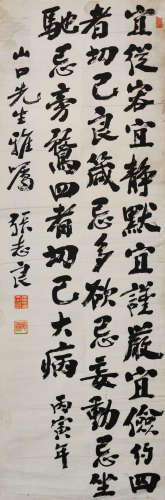 宜從容宜静默宜謹嚴宜儉約四
者切己良箴忌多欲忌妄動忌坐
馳忌旁騖四者切己大病丙寅年
山口先生雅屬張志良